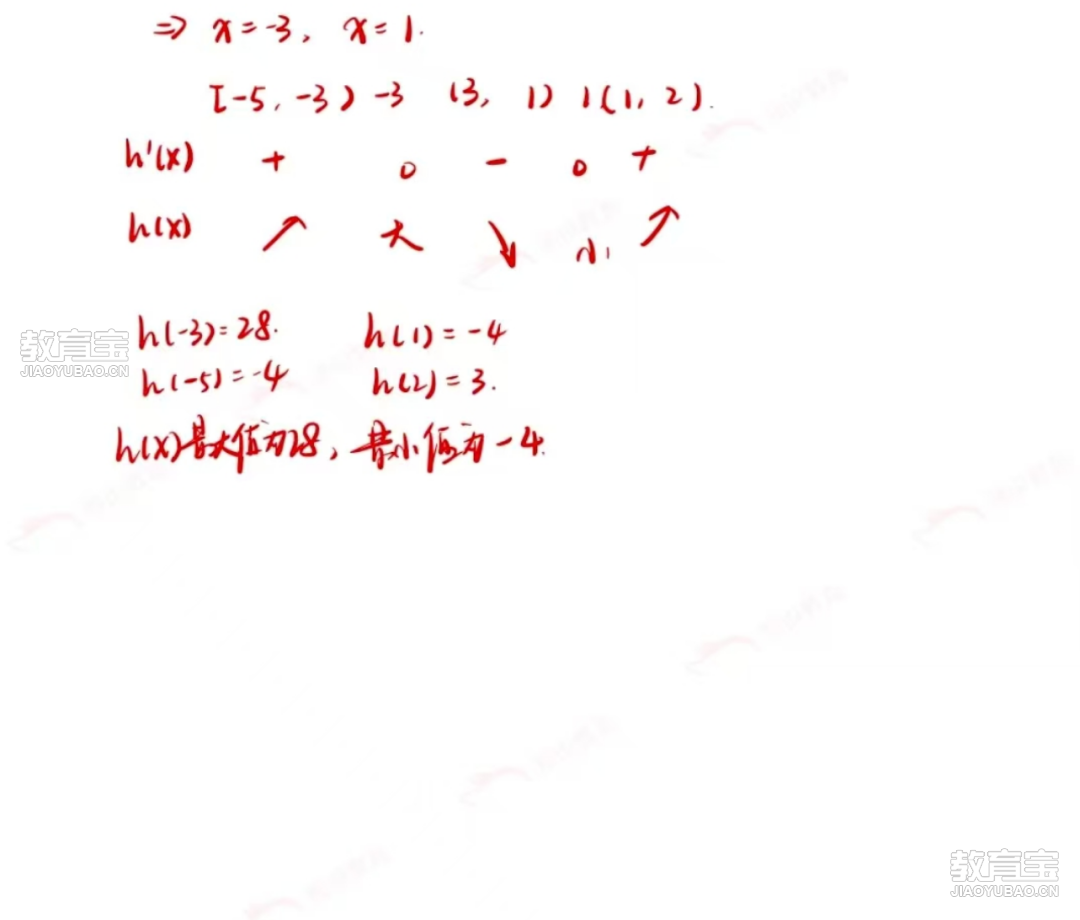 ⇒ x=-3, x=1.
[-5, -3) -3 (3, 1) 1 (1, 2).
h'(x) + 0 - 0 +
h(x) ↗ 大 ↘ 小 ↗
h(-3)=28. h(1)=-4
h(-5)=-4 h(2)=3.
h(x)最大值为28, 最小值为-4.
教育宝
JIAOYUBAO.CN
教育宝
JIAOYUBAO.CN